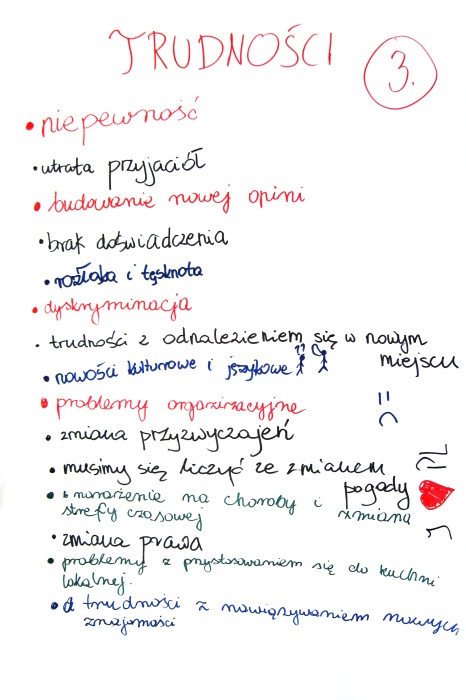 TRUDNOŚCI
3.
• niepewność
• utrata przyjaciół
• budowanie nowej opini
• brak doświadczenia
• rozłąka i tęsknota
• dyskryminacja
• trudności z odnalezieniem się w nowym
miejscu
• nowości kulturowe i językowe
??
• problemy organizacyjne
• zmiana przyzwyczajeń
• musimy się liczyć ze zmianem
pogody
• narażenie na choroby i zmianą
strefy czasowej
• zmiana prawa
• problemy z przystosowaniem się do kuchni
lokalnej.
• trudności z nawiązywaniem nowych
znajomości